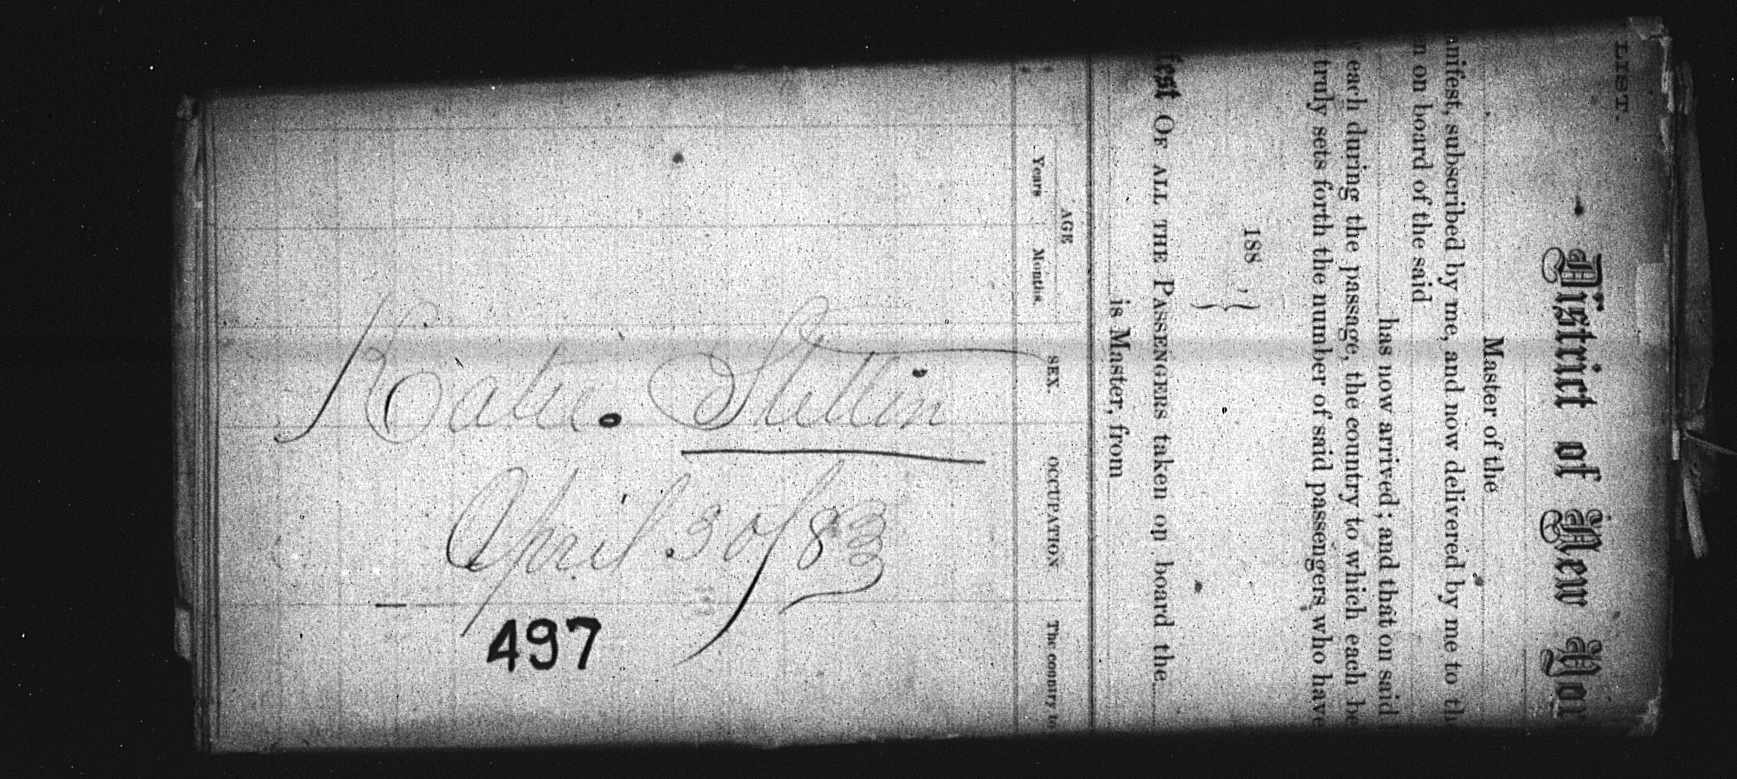 Katie. Stettin
April 30/83
497
LIST.
District of New Yor
Master of the
anifest, subscribed by me, and now delivered by me to th
n on board of the said
has now arrived; and that on said
each during the passage, the country to which each be
truly sets forth the number of said passengers who have
188 , }
fest OF ALL THE PASSENGERS taken on board the
is Master, from
AGE
Years Months.
SEX.
OCCUPATION
The country to